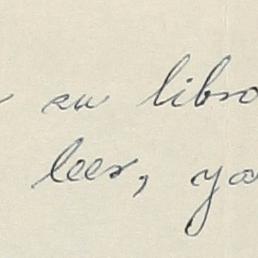 su libro
leer, ya